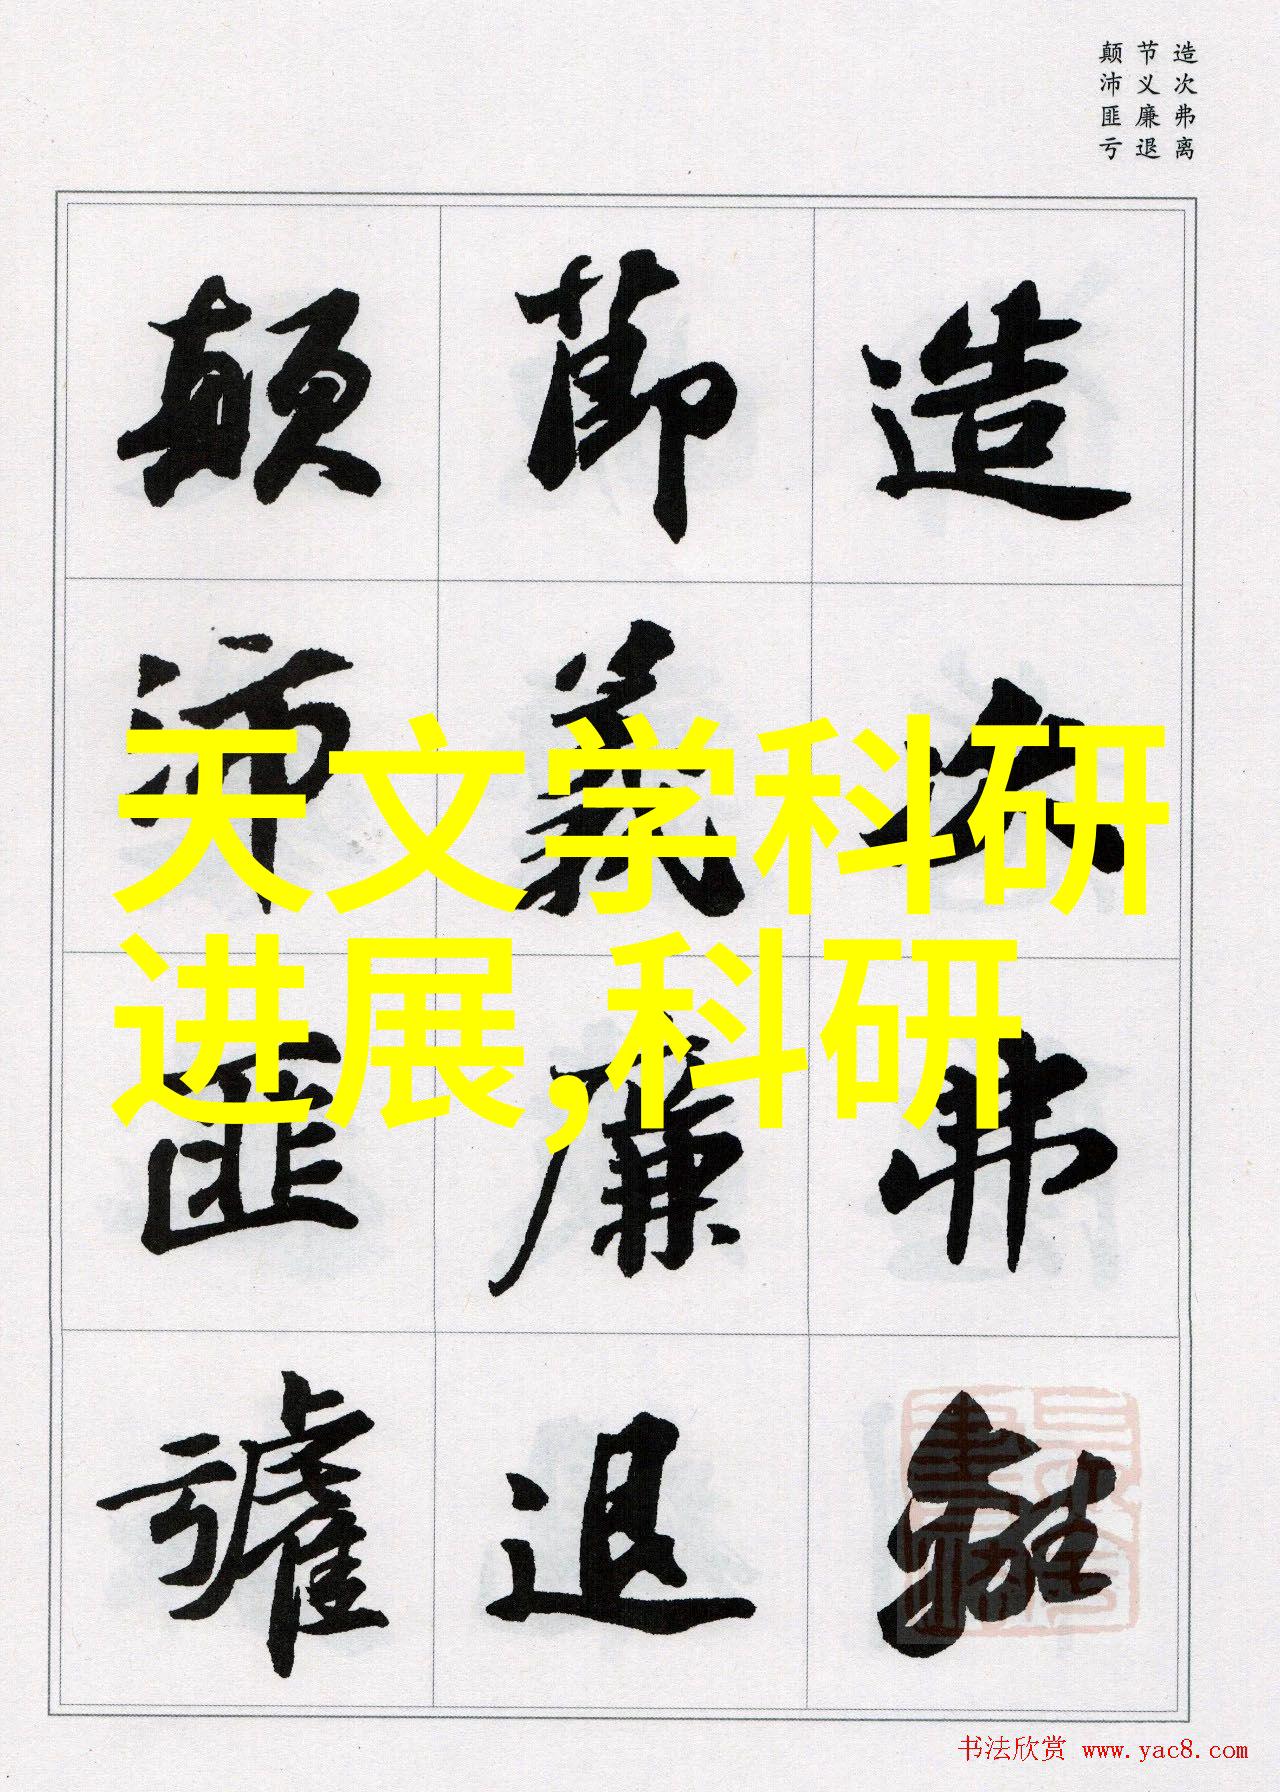 造次弗离
节义廉退
颠沛匪亏
造次弗離
節義廉退
顛沛匪虧
天文学科研
进展,科研
书法欣赏 www.yac8.com